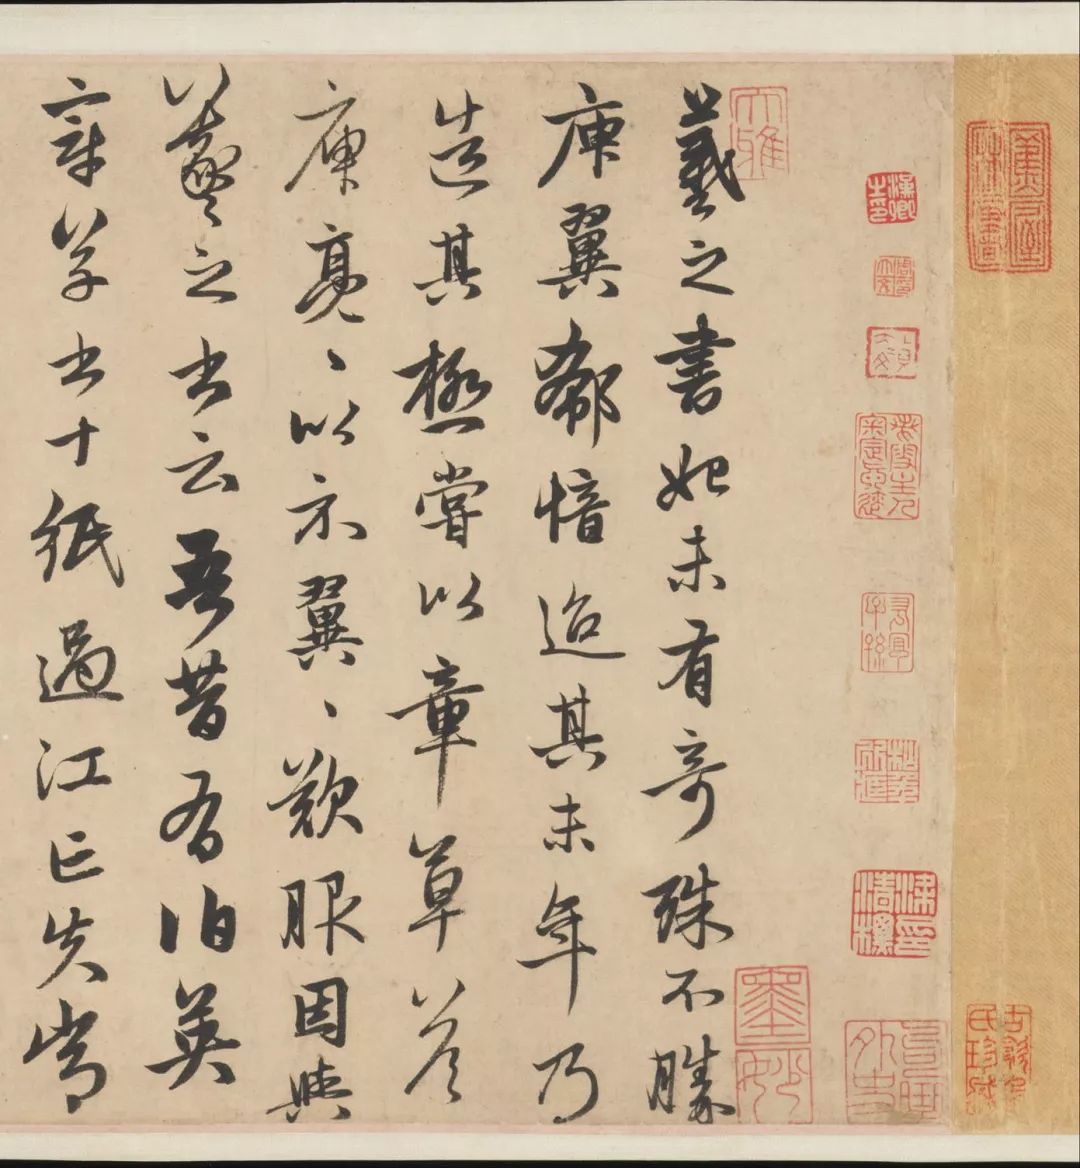 大雅
羲之書始未有奇殊不勝
庾翼郗愔迨其末年乃
造其極嘗以章草答
庾亮、以示翼、歎服因與
羲之書云吾昔有伯英
章草書十紙過江亡失常
墨妙